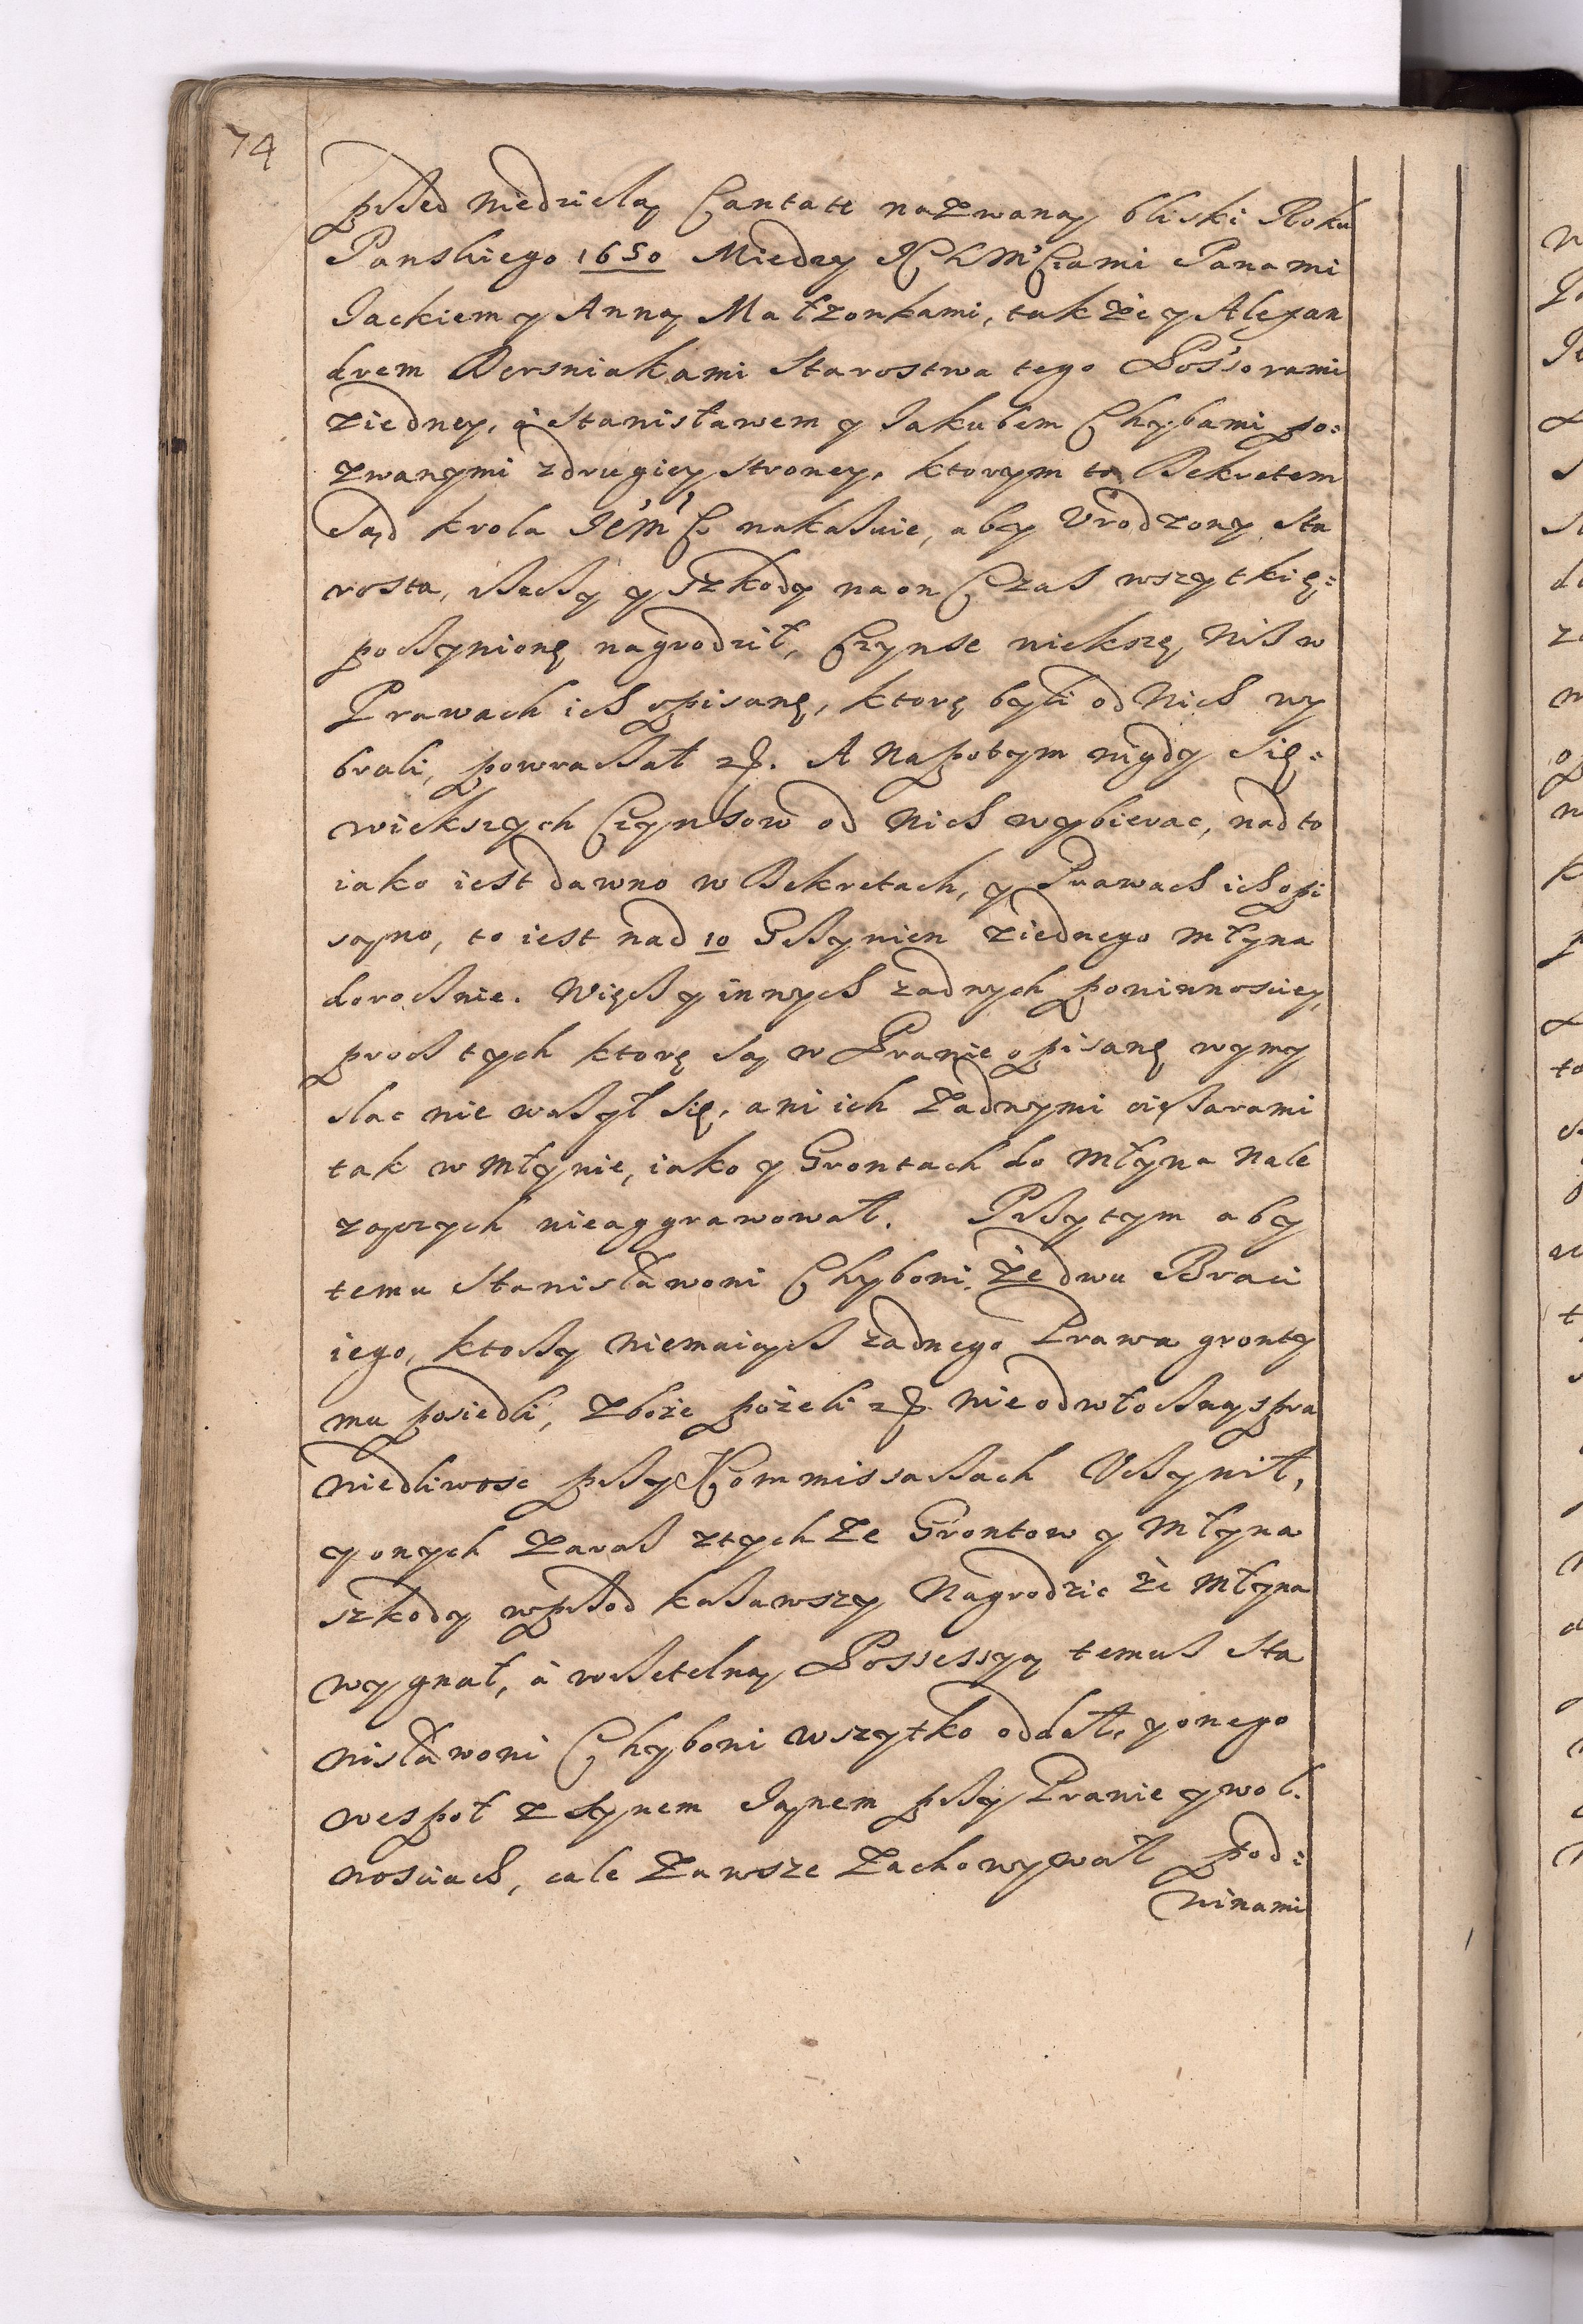 74
przed Niedzielą Cantate nazwaną bliski Roku
Panskiego 1650 Miedzy IchMCiami Panami
Iackiem y Anną Małzonkami, także y Alexan
drem Bersniakami Starostwa tego Possorami
ziedney, à Stanisławem y Iakubem Chybami po:
zwanymi zdrugiey stroney, ktorym to Dekretem
Sąd krola IeMCi nakaszuie, aby Urodzony Sta
rosta, y szkody na on Czas wszytkię:
poczynionę nagrodził, Czynse niekszę, Nisz w
Prawach ich opisanę, ktorę byli od Nich wy
brali, powraczał etc. A Napotym nigdy Się:
wiekszych Czynsow od Nich wybierac, nad to
iako iest dawno w Dekretach, y Prawach ich opi
sano, to iest nad 10 Grzywien ziednego młyna
dorocznie. Więcz y innych zadnych powinnosciey,
procz tych ktorę są w Prawie opisanę wymy
slac nie waszył się, ani ich żadnymi cięszarami
tak w młynie, iako y Grontach do młyna Nale
zących nieaggrawował. Przytym aby
temu Stanisławowi Chybowi, że dwu Braci
iego, ktorzy niemaiącz zadnego Prawa gronty
mu posiedli, zboże pożeli etc. nieodwłoczną spra
wiedliwosc przy Kommissarzach Uczynił,
y onych zarasz ztych ze Grontow y Młyna
szkody wprzod kazawszy Nagrodzic że młyna
wygnał, à wrzetelną Possessyą temusz Sta
nisławowi Chybowi wszytko oddał, y onego
wespoł z Synem Ianem przy Prawie y wol.
nosciach, cale zawsze zachowywał pod:
winami